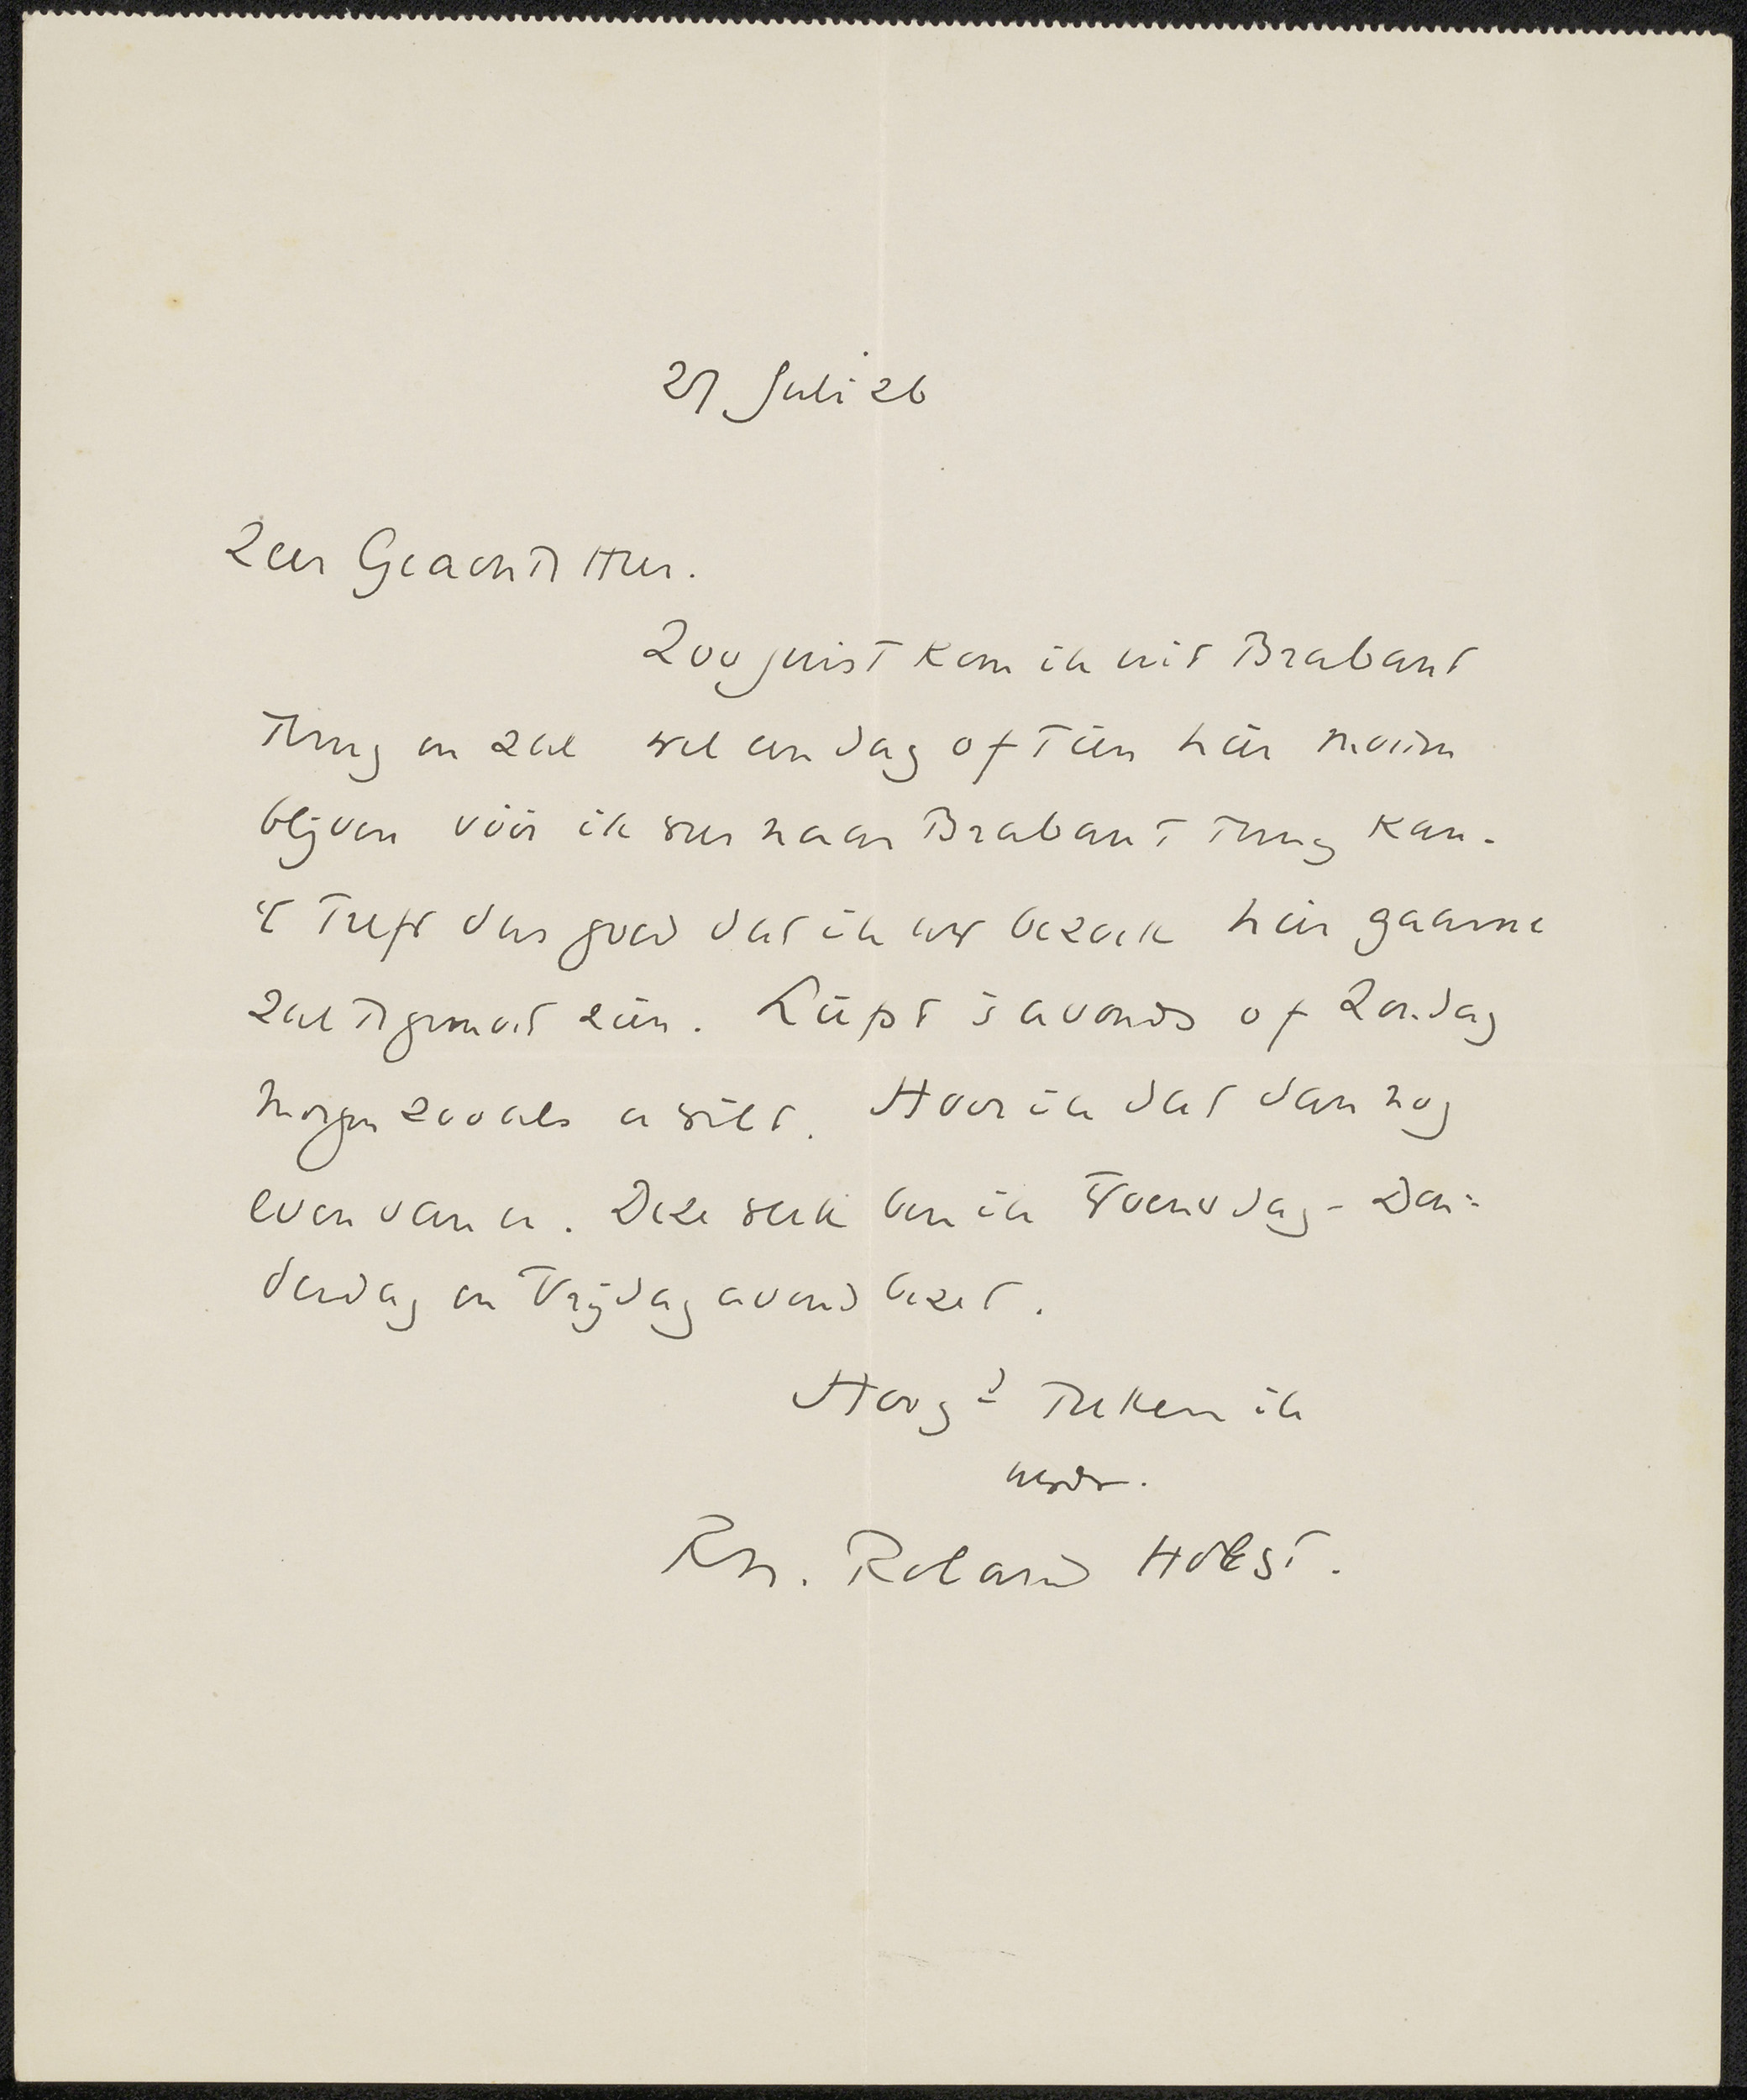 27 Juli 26
Zeer Geachte Heer.
Zoo juist kom ik uit Brabant
terug en zal wel een dag of tien hier moeten
blijven vóór ik weer naar Brabant terug kan.
't Treft dus goed dat ik uw bezoek hier gaarne
zal tegemoet zien. Liefst 's avonds of Zondag
morgen zooals u wilt. Hoor ik dat dan nog
even van u. Deze week ben ik Woensdag - Don-
derdag en Vrijdag avond bezet.
Hoogd teken ik
uwdr.
RN. Roland Holst.